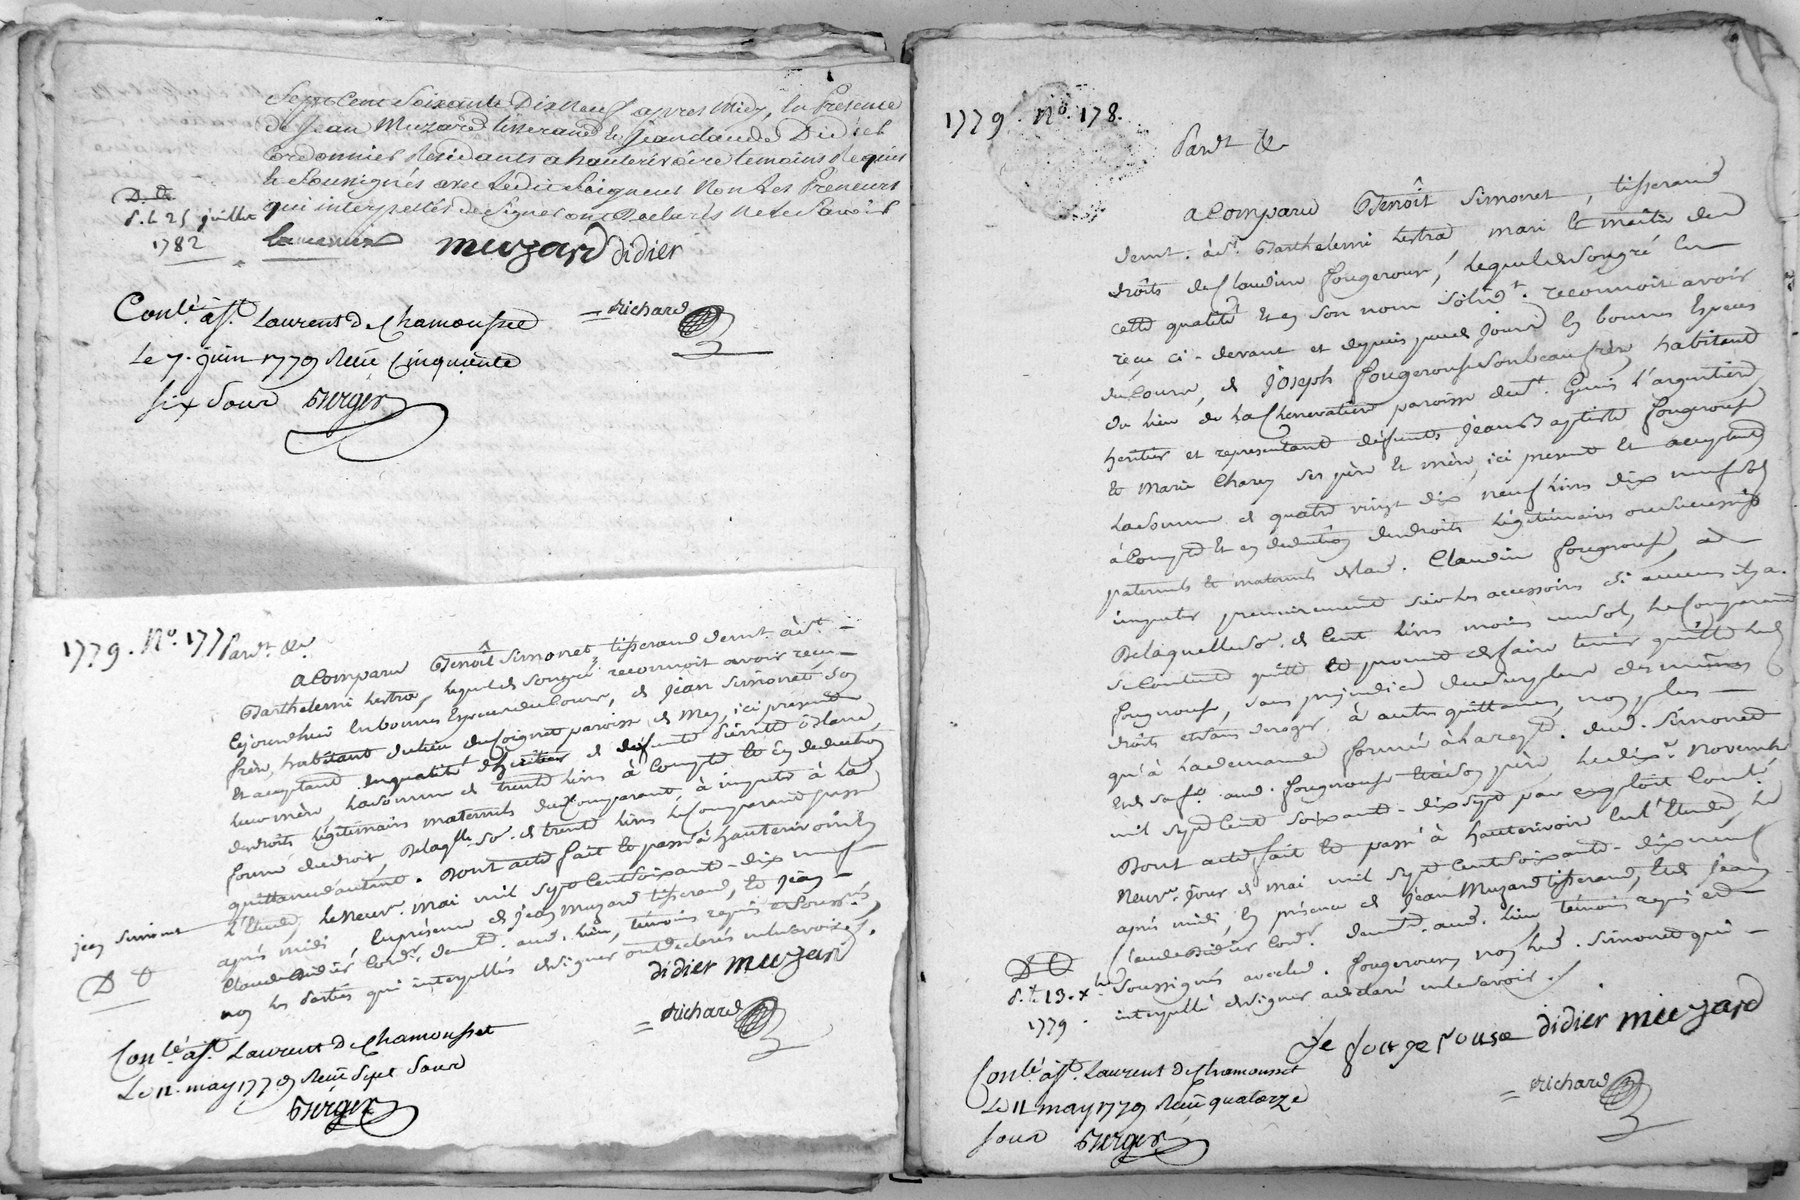 Sept Cent Soixante Dix Neuf apres Midy, En Presence
de Jean Muzard tisserand & Jean claude Didier
Cordonnier Residants a hauterivoire temoins Requis
& Soussignés avec ledit Soigneux Non Les Preneurs
qui interpellés de Signer ont Declarés Ne le Savoir
D. D.
d. L. 25 juillet
1782
muzard didier
Conlé. à St. Laurent de Chamousset
Le 7. juin 1779 Reçu Cinquante
six Sous Berger
Richard
1779. No. 177
Pardt. &a.
A Comparu Benoît Simonet, tisserand demt. à St.
Barthelemi Lestra, lequel de son gré reconnoit avoir reçu
cejourdhui en bonnes Especes du Cours, de Jean Simonet son
frère, habitant du lieu du Soignet paroisse de Mey, ici présent
et acceptant en qualité d'héritier de defunte Pierrette
leur mère, la somme de trente livres à Compte et en deduction
des droits légitimaires maternels du Comparant, à imputer à la
forme du droit, De laqlle. So. de trente livres le Comparant passe
quittance d'autant. Dont acte fait et passé à hauterivoire en
l'Etude, le Neuv. mai mil sept Cent soixante-dix neuf
après midi, En présence de Jean Muzard tisserand, et Jean
Claude Didier Cordr. demt. aud. lieu, témoins requis et Soussignés,
non les Parties qui interpellés de signer ont declarés ne le savoir.
jean simonet
D D
didier muzard
Richard
Conlé. à St. Laurent De Chamousset
Le 11. may 1779 Reçu Sept Sous
Berger
1779. No. 178.
Pardt. &a
A Comparu Benoît Simonet, tisserand
demt. à St. Barthelemi Lestra mari et maitre des
droits de Claudine fougerouse, lequel de son gré En
cette qualité et en son nom solidt. reconnoit avoir
reçu ci-devant et depuis peu de jours En bonnes Especes
du Cours, de Joseph fougerouse son beau frère, habitant
du lieu de La Chenevatiere paroisse de St. Genis l'argentiere
heritier et representant defunts Jean Baptiste fougerouse
et Marie Charey ses père et mère, ici present et acceptant
la somme de quatre vingt dix neuf livres dix neuf sols
à Compte et en deduction des droits légitimaires ou successifs
paternels et maternels de lad. Claudine fougerouse, à
imputer premierement sur les accessoires si aucuns il y a.
De laquelle So. de Cent livres moins un sol, le Comparant
se Contente quitte et promet de faire tenir quitte led.
fougerouse, sans prejudice du surplus des mêmes
droits et sans deroger à autres quittances, non plus
qu'à la demande formée à la reqte. dud. Simonet
et de sa fe. aud. fougerouse et à son père le dix Novembre
mil sept Cent soixante-dix sept par exploit Conlé.
Dont acte fait et passé à hauterivoire en l'Etude, le
Neuv. jour de mai mil sept Cent soixante-dix neuf
après midi, En présence de Jean Muzard tisserand, et de Jean
Claude Didier Cordr. demt. aud. lieu témoins requis et
Soussignés avec led. fougerouse, non led. Simonet qui
interpellé de signer a declaré ne le savoir.
D D
d. L. 13. xbre
1779.
Je fougerouse didier muzard
Richard
Conlé. à St. Laurent de Chamousset
Le 11 may 1779 Reçu quatorze
sous Berger